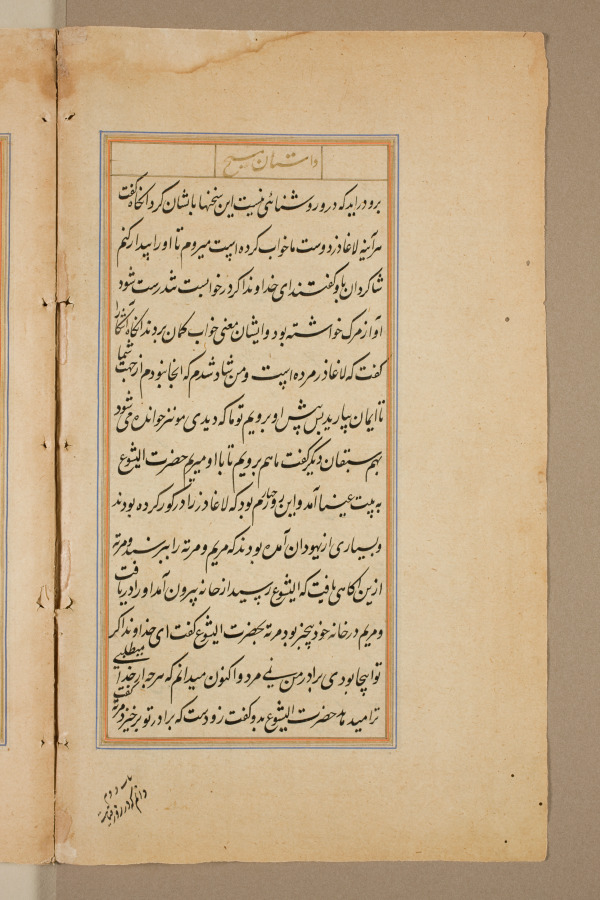 داستان مسیح
برو دراید که در و روشنائی نیست این سخنها با یشان کرد آنگاه گفت
هر آینه لاغاذر دوست ما خواب کرده است میروم تا او را بیدار کنم
شاکردان باو گفتند ای خداوند اکر در خواب است تندرست شود
او از مرک خواسته بود و ایشان معنی خواب کمان بردند آنگاه آشکارا
گفت که لاغاذر مرده است و من شاد شدم که آنجا نبودم از جهت شما
تا ایمان بیارید پس پیش او برویم توما که دیدی مونیز خوانده می شود
بهم سبقان دیگر گفت ما هم برویم تا با او میریم حضرت ایشوع
به بیت عینیا آمد و این روز چهارم بود که لاغاذر را در کور کرده بودند
و بسیاری از یهودان آمده بودند که مریم و مرته را ببرسند و مرته
ازین آکاهی یافت که ایشوع رسید از خانه بیرون آمد او را دریافت
و مریم در خانه خود بیخبر بود مرته بحضرت ایشوع گفت ای خداوند اکر
تو اینجا بودی برادر من نمی مرد و اکنون میدانم که هر چه از خدا میطلبی
ترا میدهد حضرت ایشوع بدو گفت زود است که برادر تو برخیزد مرته گفت
دانم که در روز قیامت